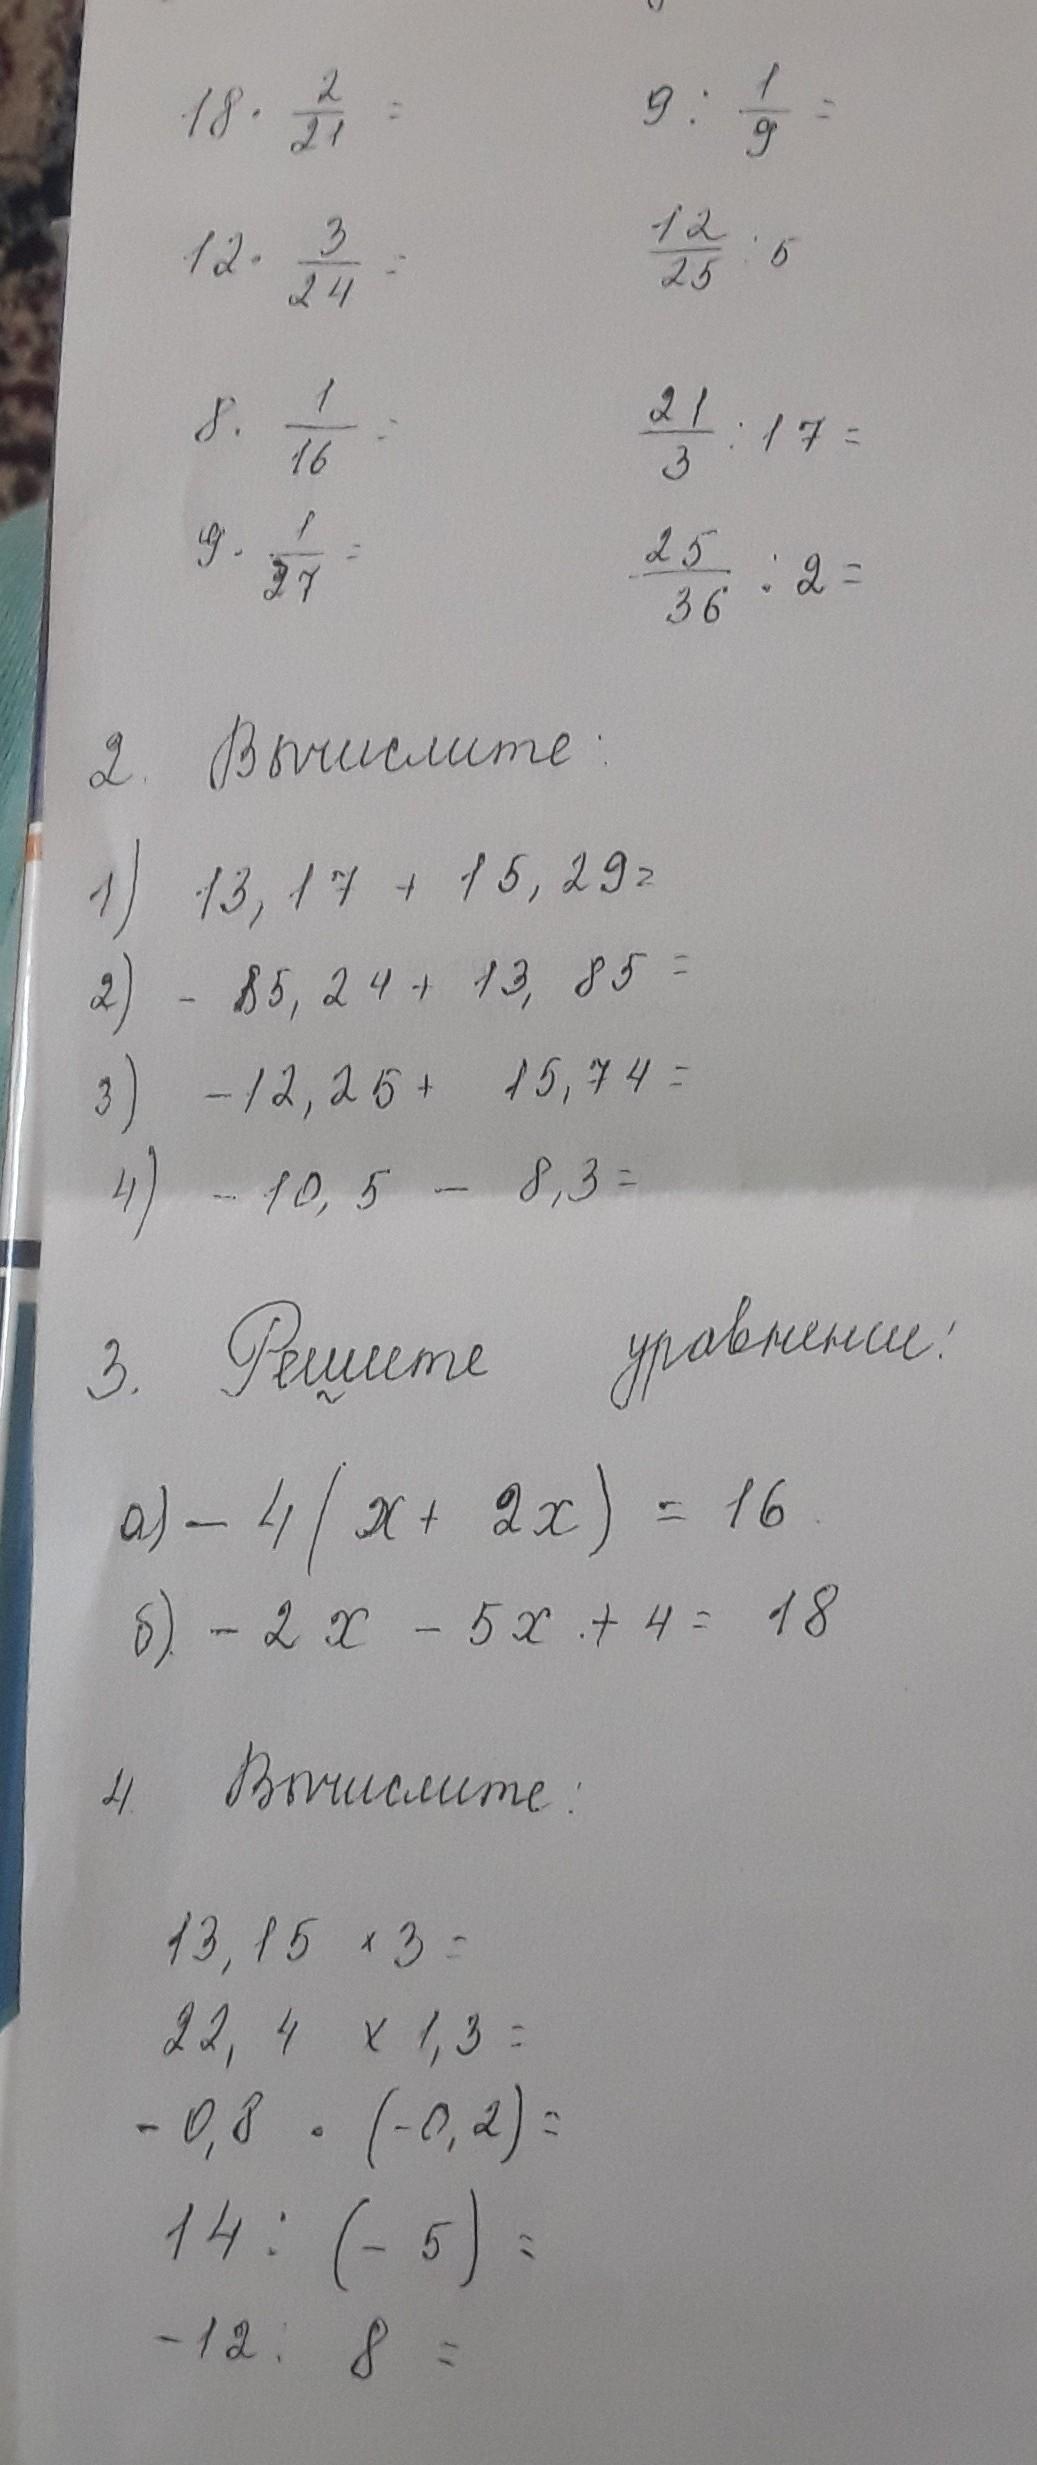 18 · 2/21 =
9 : 1/9 =
12 · 3/24 =
12/25 : 5
8 · 1/16 =
21/3 : 17 =
9 · 1/27 =
25/36 : 2 =
2. Вычислите:
1) 13,17 + 15,29=
2) - 85,24 + 13,85 =
3) -12,25 + 15,74 =
4) - 10,5 - 8,3 =
3. Решите уравнении:
а) - 4(x + 2x) = 16.
б) - 2x - 5x + 4 = 18
4. Вычислите:
13,15 × 3 =
22,4 × 1,3 =
-0,8 · (-0,2) =
14 : (- 5) =
-12 : 8 =